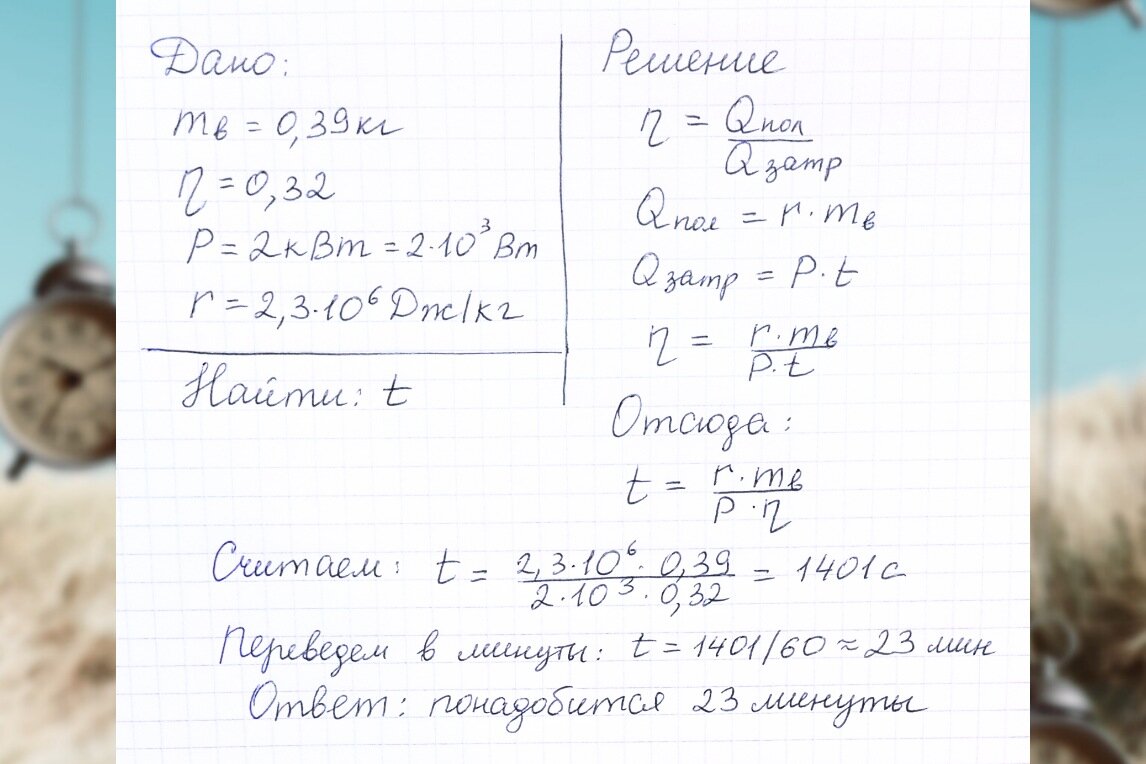 Дано:
mв = 0,39 кг
η = 0,32
P = 2 кВт = 2·10³ Вт
r = 2,3·10⁶ Дж/кг
Найти: t
Решение
η = Qпол / Qзатр
Qпол = r·mв
Qзатр = P·t
η = r·mв / P·t
Отсюда:
t = r·mв / P·η
Считаем: t = 2,3·10⁶·0,39 / 2·10³·0,32 = 1401 с
Переведем в минуты: t = 1401/60 ≈ 23 мин
Ответ: понадобится 23 минуты